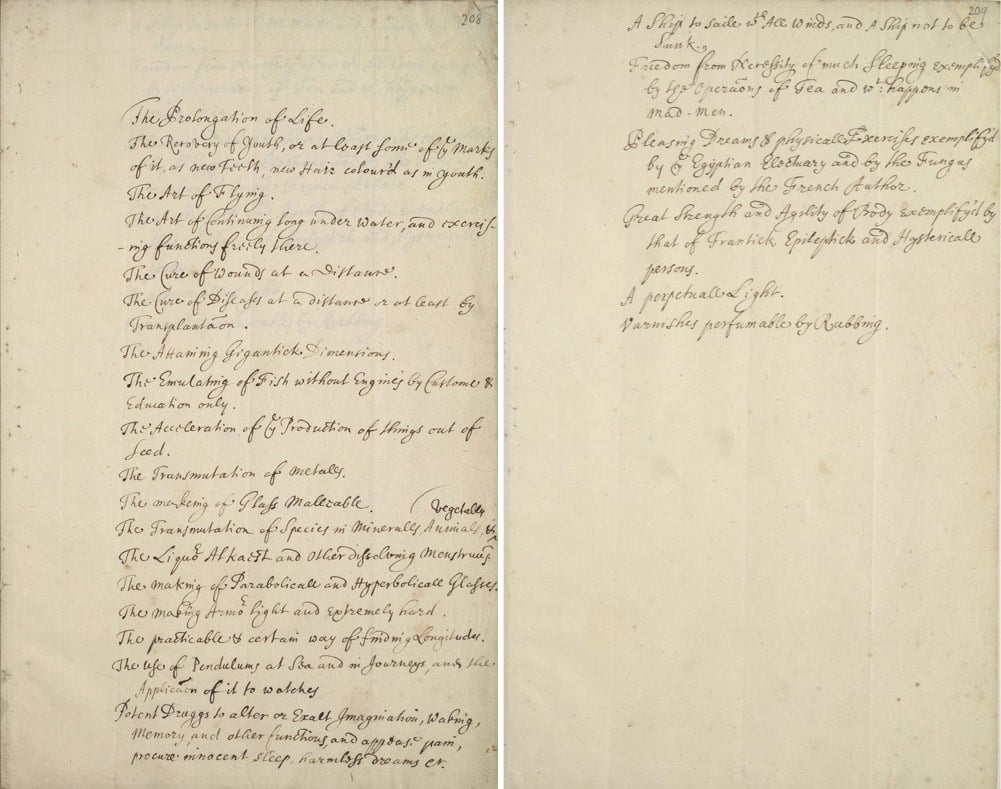 208
The Prolongation of Life.
The Recovery of Youth, or at least some of ye Marks
of it, as new Teeth, new Hair colour'd as in youth.
The Art of Flying.
The Art of Continuing long under water, and exercis-
-ing functions freely there.
The Cure of Wounds at a Distance.
The Cure of Diseases at a distance or at least by
Transplantaon.
The Attaining Gigantick Dimensions.
The Emulating of Fish without Engines by Custome &
Education only.
The Acceleration of ye Production of things out of
Seed.
The Transmutation of Metalls.
The makeing of Glass Malleable.
(Vegetalls
The Transmutation of Species in Mineralls, Animals, &
The Liquor Alkaest and other dissolving Menstruums
The making of Parabolicall and Hyperbolicall Glasses.
The making Armor light and extremely hard.
The practicable & certain way of finding Longitudes.
The use of Pendulums at Sea and in Journeys, and the
Applicaon of it to watches
Potent Druggs to alter or Exalt Imagination, Waking,
Memory, and other functions, and appease pain,
procure innocent sleep, harmless dreams etc.
209
A Ship to saile wth All Winds, and A Ship not to be
Sunk.
Freedom from Necessity of much Sleeping exemplify'd
by the Operaons of Tea and wt happens in
Mad-Men.
Pleasing Dreams & physicall Exercises exemplify'd
by ye Egyptian Electuary and by the Fungus
mentioned by the French Author.
Great Strength and Agility of Body exemplify'd by
that of Frantick Epileptick and Hystericall
persons.
A perpetuall Light.
Varnishes perfumable by Rubbing.